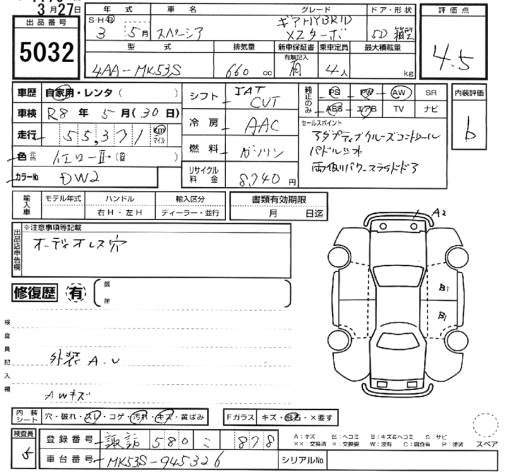 3月27日
出品番号
5032
年式 車名 グレード ドア・形状
SHR 3年5月 スペーシア ギアHYBRID XZターボ 5D 箱型
型式 排気量 新車保証書 乗車定員 最大積載量
4AA-MK53S 660cc 有無記入 有 4人 kg
評価点
4.5
車歴 自家用・レンタ( )
車検 R8年5月(30日)
走行 55,371 km マイル
色 イエローⅡ
カラーNo DW2
シフト IAT CVT
冷房 AAC
燃料 ガソリン
リサイクル料金 8,740円
純正のみ PS PW AW SR
ABS エアB TV ナビ
内装評価
b
セールスポイント
アダプティブクルーズコントロール
パドルシフト
両側パワースライドドア
輸入車 モデル年式 ハンドル 輸入区分
年 右H・左H ディーラー・並行
書類有効期限
月 日迄
出品店申告欄
※注意事項等記載
オーディオレス穴
修復歴 有
検査員記入欄
外装A.U
AWキズ
A2
B1
B1
内装シート 穴・破れ・スレ・コゲ・汚れ・キズ・黄ばみ
Fガラス キズ・飛石・×要す
A:キズ E:ヘコミ B:キズ&ヘコミ S:サビ
××:交換済 ×:交換要 W:波有 C:腐食有 P:塗装
スペア
検査員
登録番号 諏訪 580 こ 878
車台番号 MK53S-945326
シリアルNo.